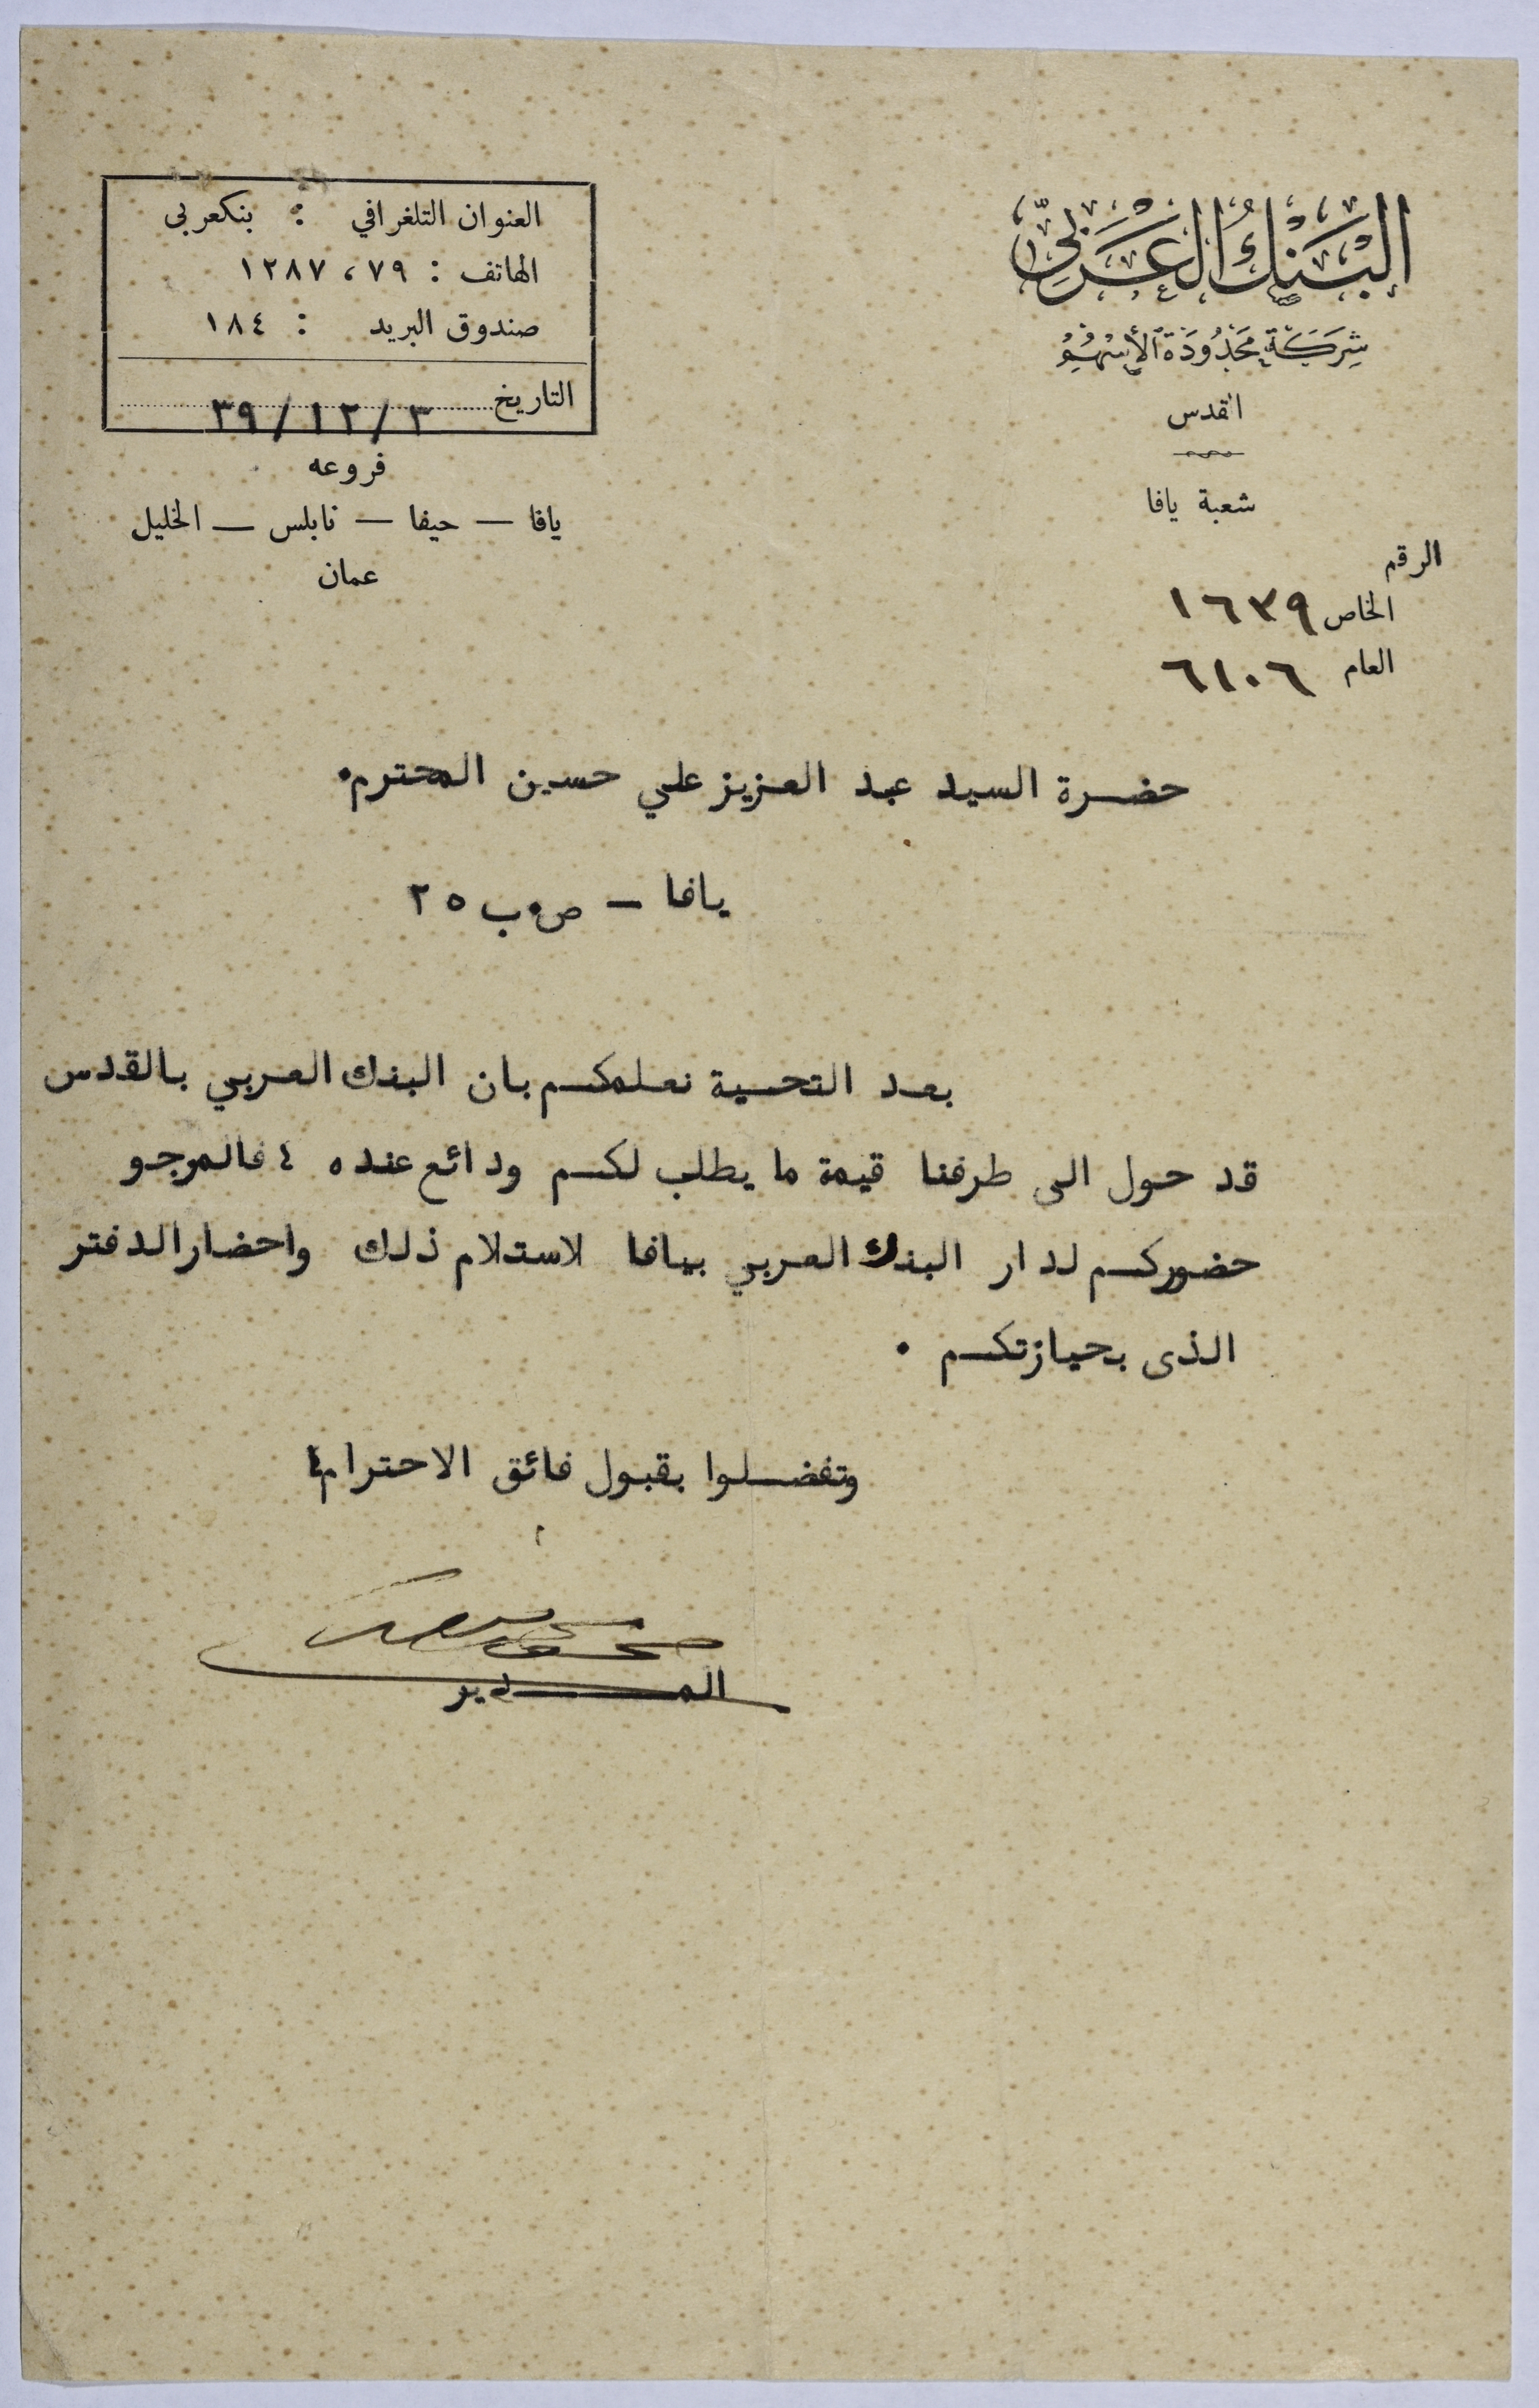 البَنْكُ العَرَبيّ
شِرَكَة مَحْدُودَة الأَسْهُم
القدس
شعبة يافا
الرقم
الخاص ١٦٣٩
العام ٦١٠٦
العنوان التلغرافي : بنكعربى
الهاتف : ٧٩ ، ١٢٨٧
صندوق البريد : ١٨٤
التاريخ ٣/١٢/٣٩
فروعه
يافا — حيفا — نابلس — الخليل
عمان
حضرة السيد عبد العزيز علي حسين المحترم.
يافا – ص.ب ٢٥
بعد التحية نعلمكم بان البنك العربي بالقدس
قد حول الى طرفنا قيمة ما يطلب لكم ودائع عنده ٤ فالمرجو
حضوركم لدار البنك العربي بيافا لاستلام ذلك واحضار الدفتر
الذى بحيازتكم .
وتفضلوا بقبول فائق الاحترام
المدير